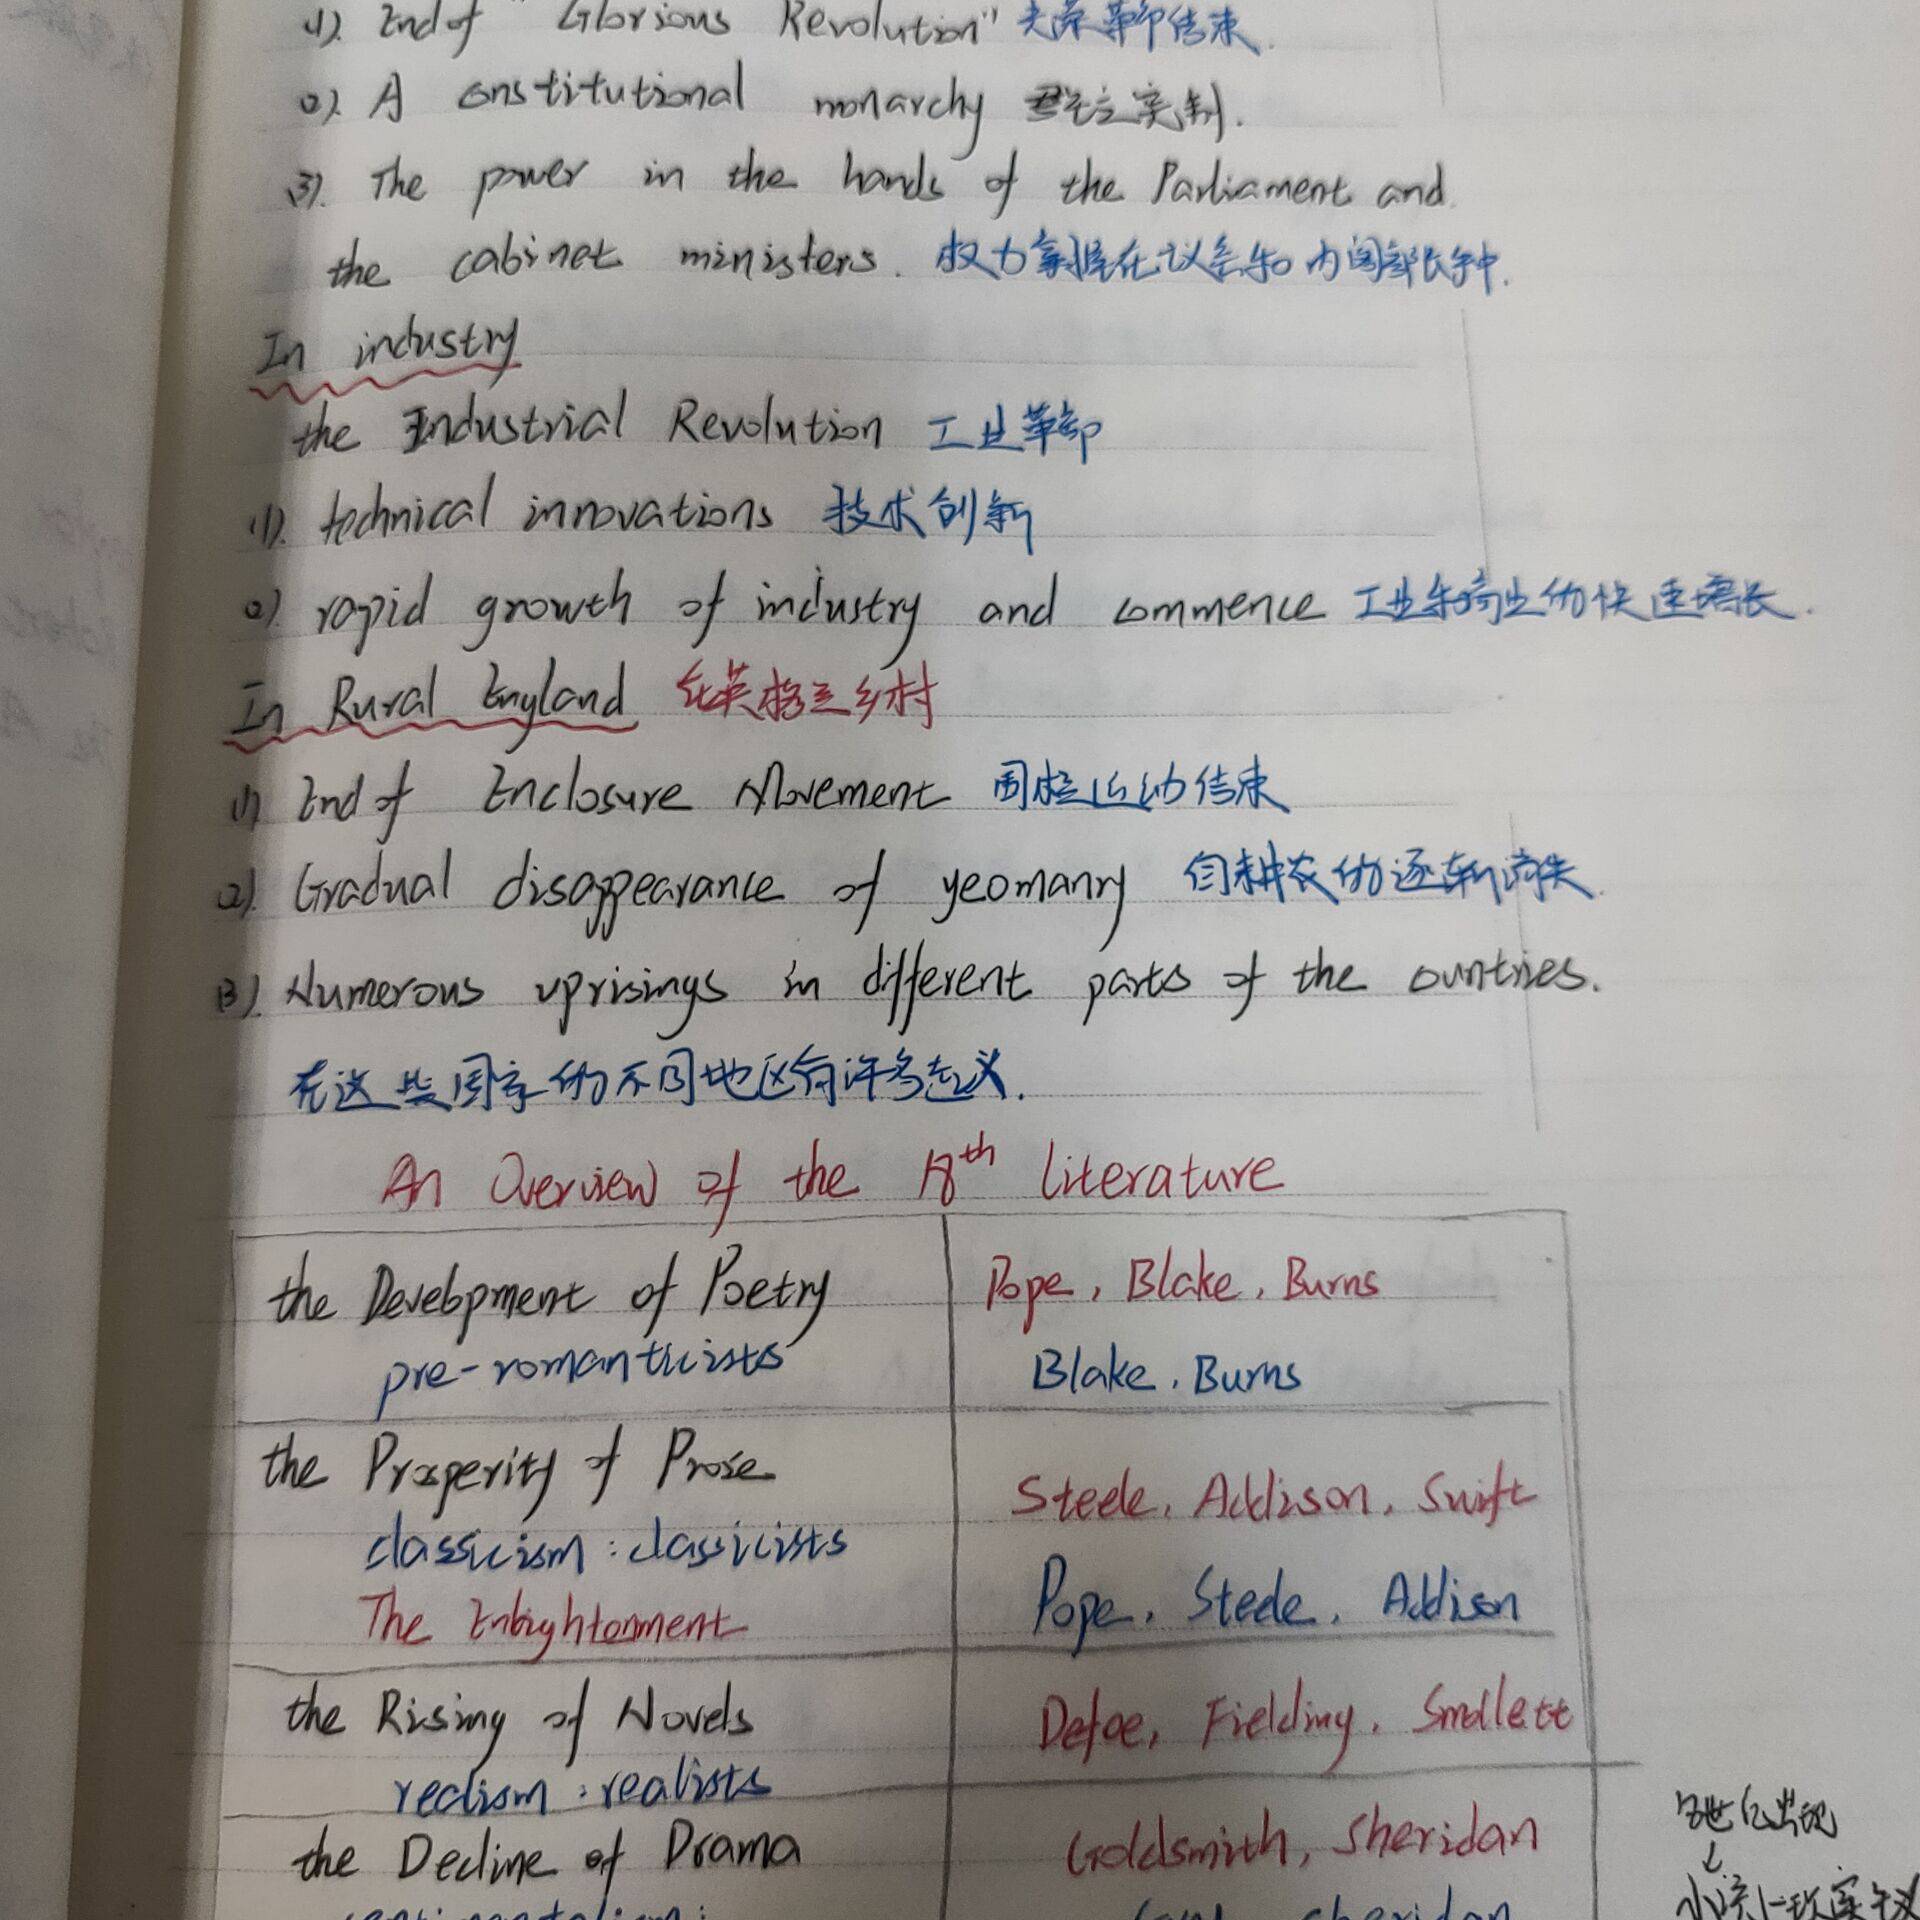 (1). End of "Glorious Revolution" 光荣革命结束.
(2). A constitutional monarchy 君主立宪制.
(3). The power in the hands of the Parliament and
the cabinet ministers. 权力掌握在议会和内阁部长手中.
In industry
the Industrial Revolution 工业革命
(1). technical innovations 技术创新
(2) rapid growth of industry and commence 工业和商业的快速增长.
In Rural England 在英格兰乡村
(1) End of Enclosure Movement 围栏运动结束
(2). Gradual disappearance of yeomanry 自耕农的逐渐消失.
(3). Numerous uprisings in different parts of the countries.
在这些国家的不同地区有许多起义.
An Overview of the 18th literature
the Development of Poetry
pre-romanticists
Pope, Blake, Burns
Blake, Burns
the Prosperity of Prose
classicism: classicists
The Enlightenment
Steele, Addison, Swift
Pope, Steele, Addison
the Rising of Novels
realism: realists
Defoe, Fielding, Smollett
the Decline of Drama
Goldsmith, Sheridan
sentimentalism:
Sheridan